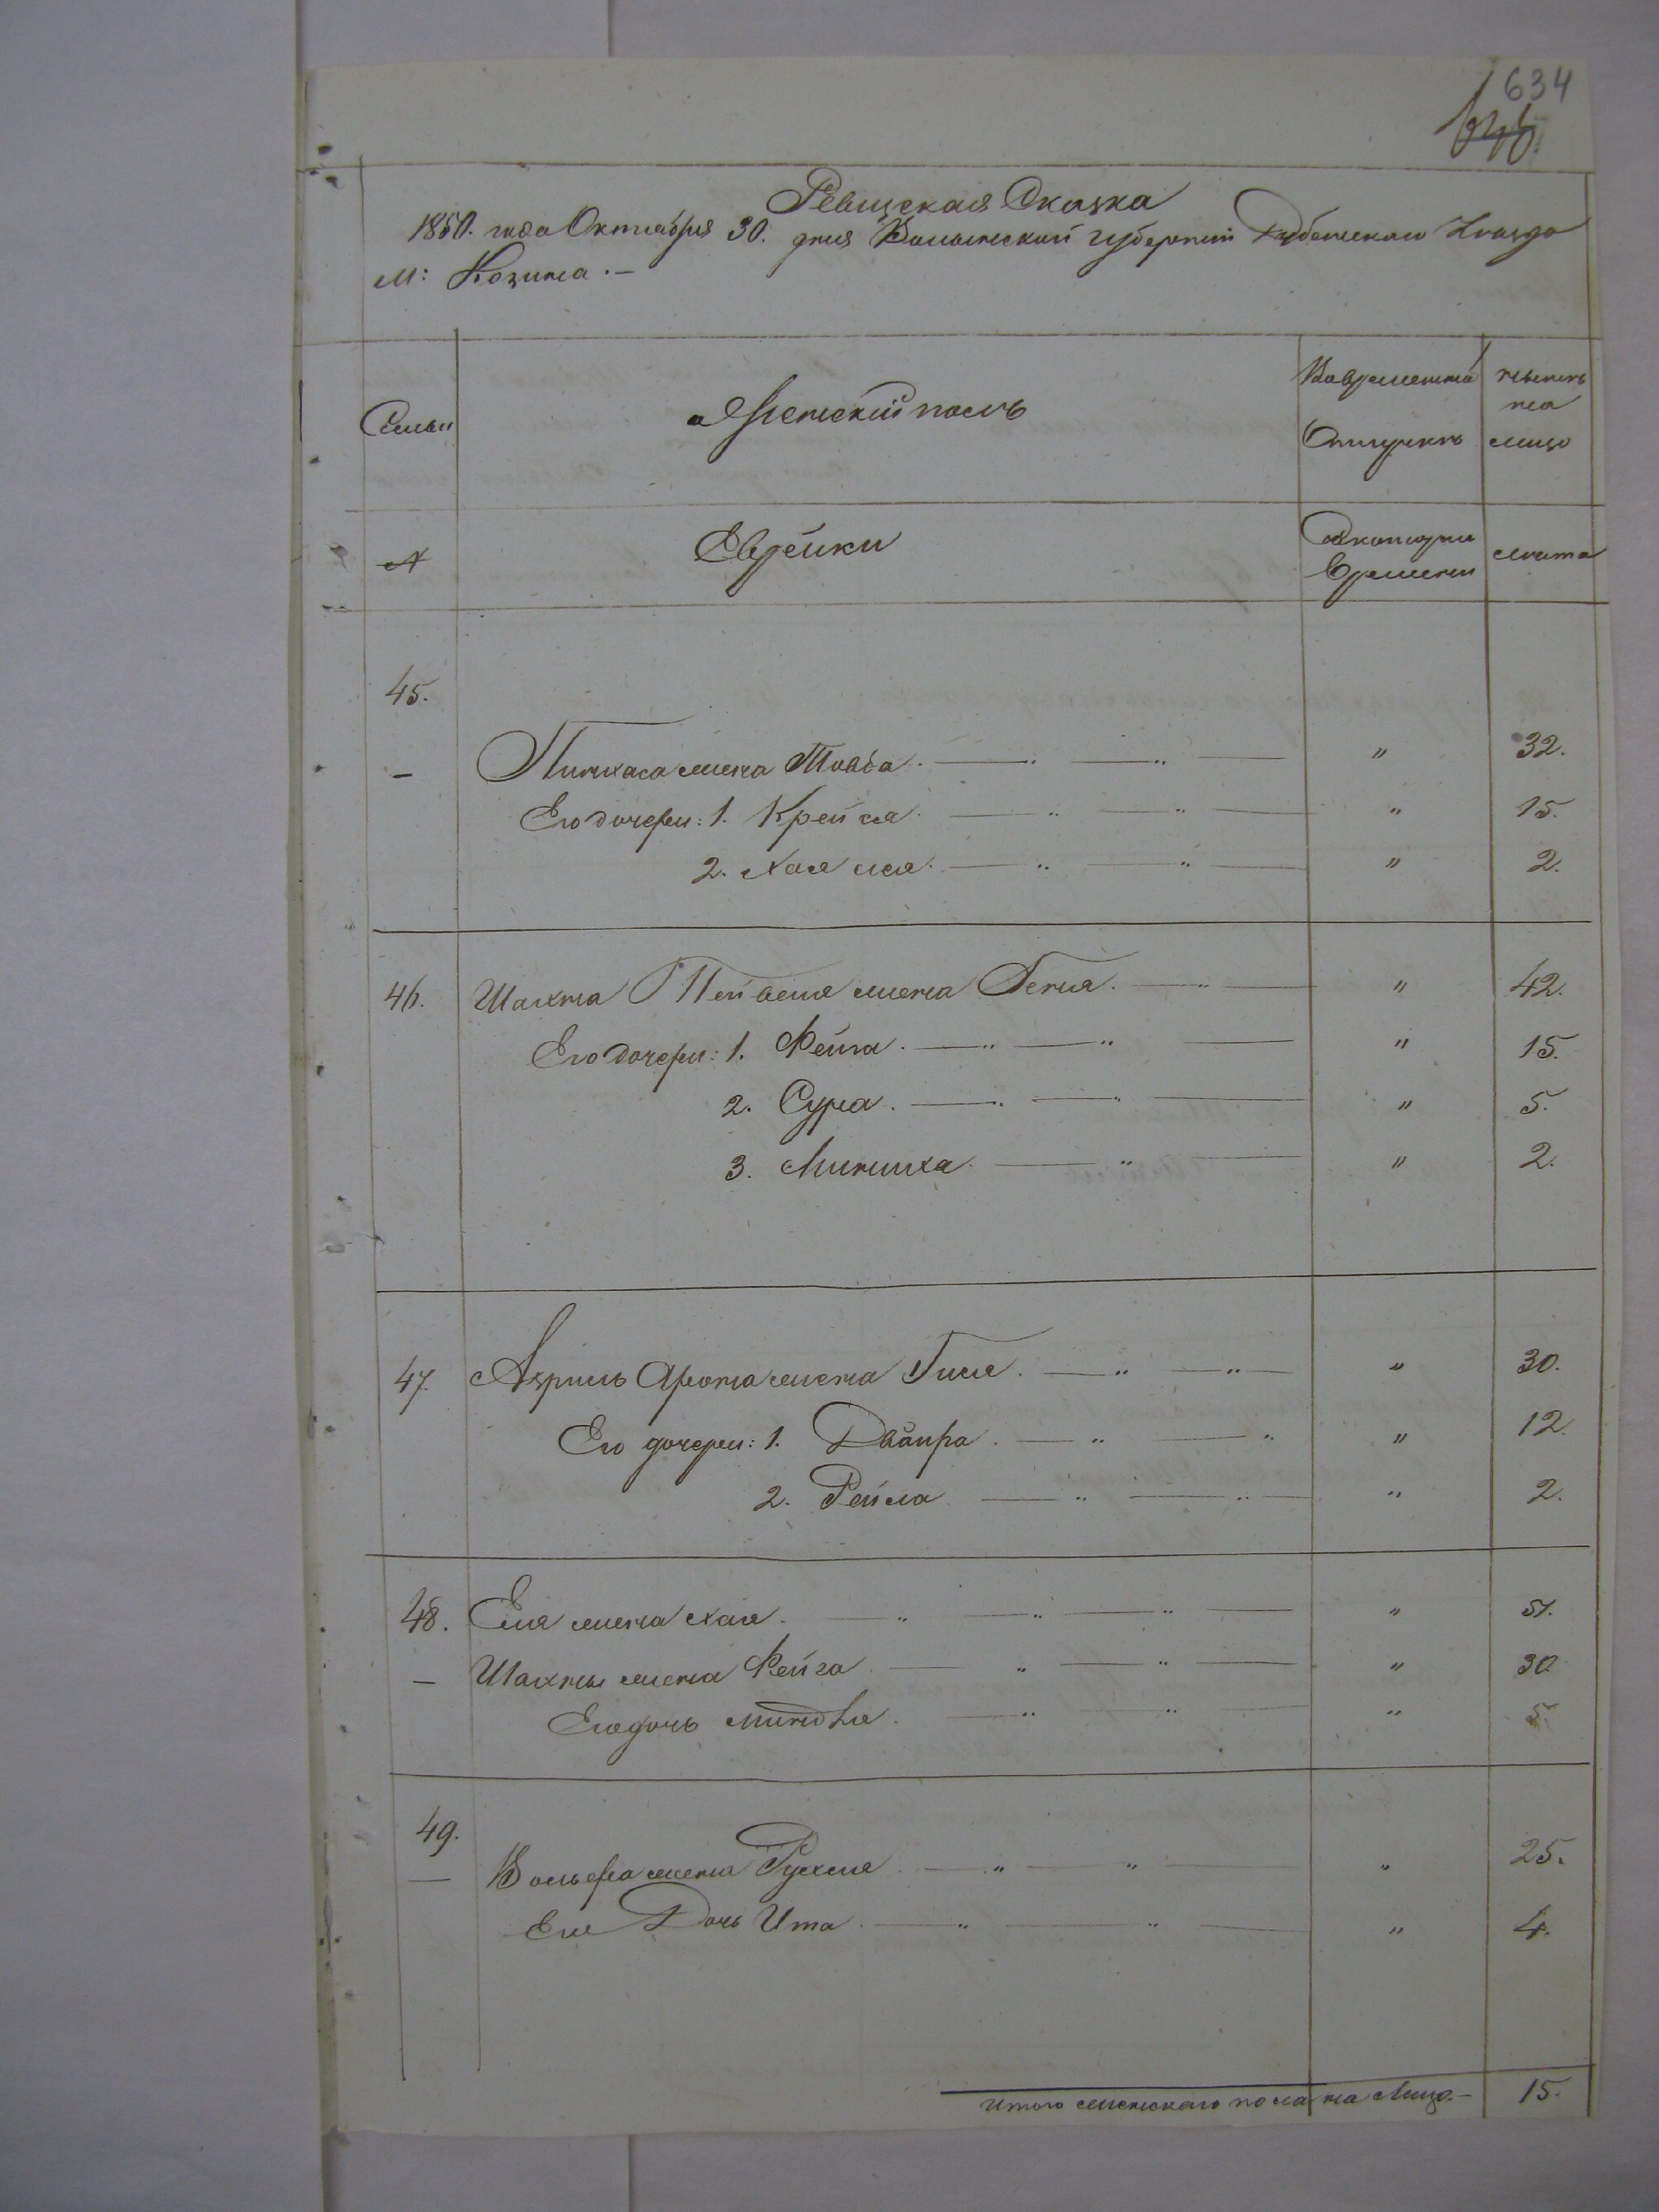 634
646.
Ревизская Сказка
1850. года Октября 30. дня Волынской губернии Дубенского Уезда
М: Козина. —
Семьи
Женский полъ
Вовременной
Отлучкъ
ныне
на
лицо
№
Еврейки
Скоторого
Времени
лета
45.
— Пинхаса жена Тоаба. " 32.
Его дочери: 1. Крейса. " 15.
2. Хая лея. " 2.
46. Шахна Пейвеля жена Геня. " 42.
Его дочери: 1. Фейга. " 15.
2. Сура. " 5.
3. Миниха. " 2.
47. Азриль Арона жена Гися. " 30.
Его дочери: 1. Двойра. " 12.
2. Рейза " 2.
48. Еля жена хая. " 51.
— Шахны жена Фейга " 30
Его дочь миндля. " 5.
49.
— Вольфа жена Рухля " 25.
Его Дочь Ита. " 4.
Итого женскаго пола на Лицо. — 15.